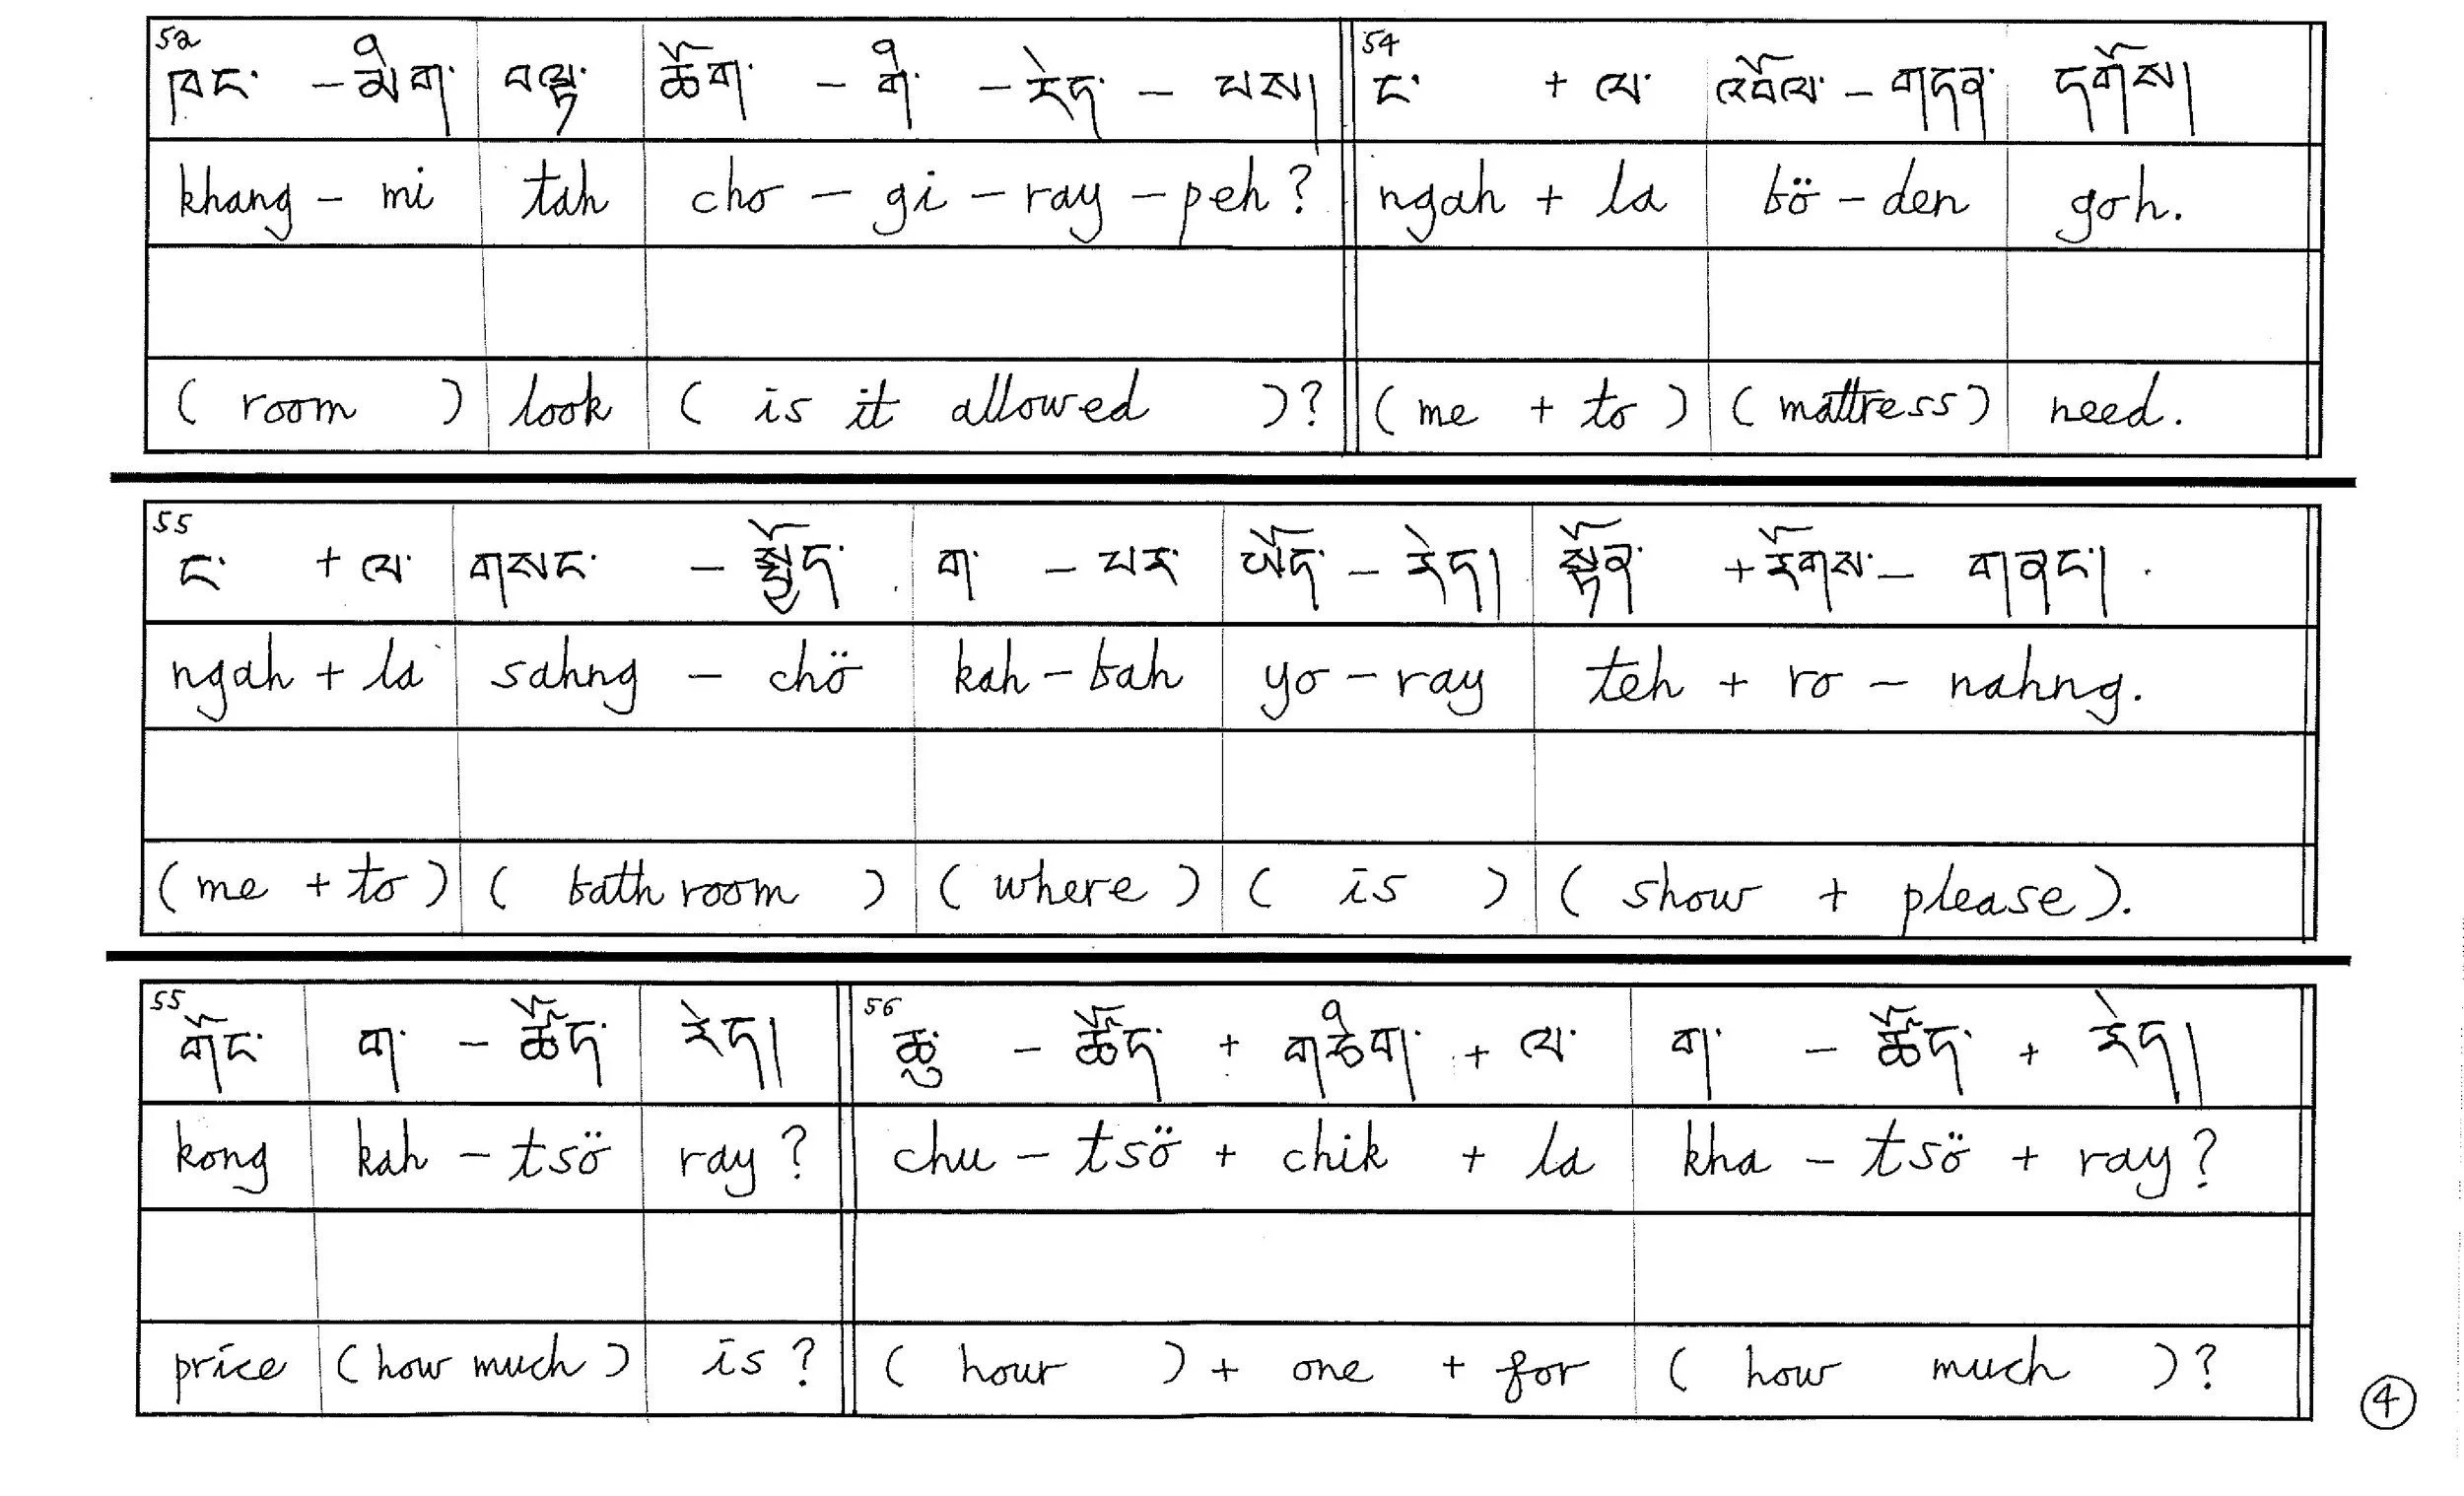 52 ཁང་ - མིག་ བལྟ་ ཆོག་ - གི་ - རེད་ - པས། 54 ང་ + ལ་ འབོལ་ - གདན་ དགོས།
khang - mi tah cho - gi - ray - peh? ngah + la bö - den goh.
( room ) look ( is it allowed )? ( me + to ) ( mattress ) need.
55 ང་ + ལ་ གསང་ - སྤྱོད་ ག་ - པར་ ཡོད་ - རེད། སྟོན་ + རོགས་ - གནང་།
ngah + la sahng - chö kah - bah yo - ray teh + ro - nahng.
( me + to ) ( bathroom ) ( where ) ( is ) ( show + please ).
55 གོང་ ག་ - ཚོད་ རེད། 56 ཆུ་ - ཚོད་ + གཅིག་ + ལ་ ག་ - ཚོད་ + རེད།
kong kah - tsö ray? chu - tsö + chik + la kha - tsö + ray?
price ( how much ) is? ( hour ) + one + for ( how much )?
4